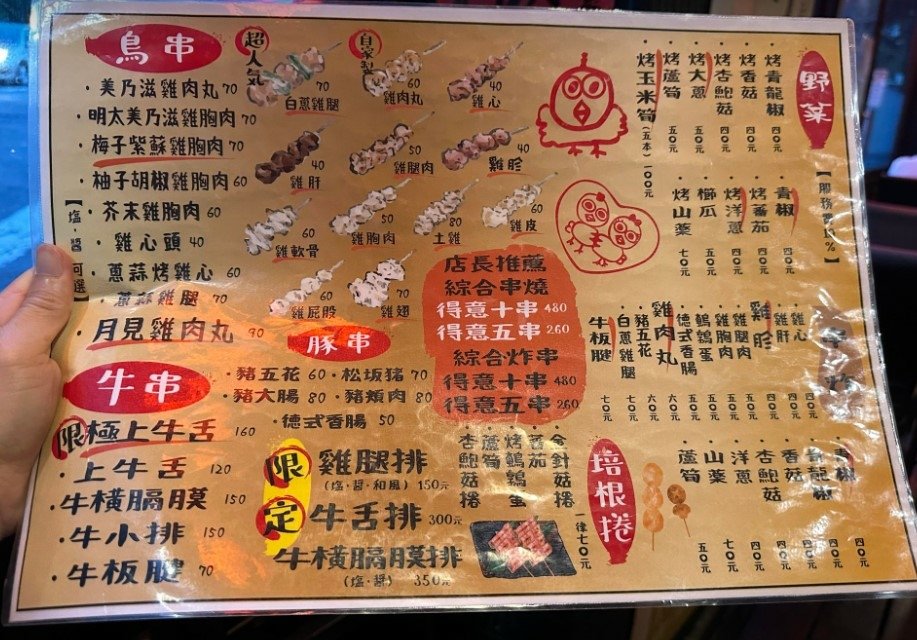 鳥串
·美乃滋雞肉丸 70
·明太美乃滋雞胸肉 70
·梅子紫蘇雞胸肉 70
·柚子胡椒雞胸肉 60
·芥末雞胸肉 60
·雞心頭 40
·蔥蒜烤雞心 60
·蔥蒜雞腿 70
·月見雞肉丸 90
【塩·醬可選】
超人気
白蔥雞腿 70
自家製
雞肉丸 60
雞心 40
雞肝 40
雞腿肉 50
雞胗 40
雞軟骨 60
雞胸肉 50
土雞 80
雞皮 60
雞屁股 60
雞翅 70
豚串
·豬五花 60
·松坂豬 70
·豬大腸 80
·豬頰肉 80
·德式香腸 50
牛串
限極上牛舌 160
·上牛舌 120
·牛橫膈膜 150
·牛小排 150
·牛板腱 70
限定
雞腿排
(塩·醬·和風) 150元
牛舌排 300元
牛橫膈膜排
(塩·醬) 350元
店長推薦
綜合串燒
得意十串 480
得意五串 260
綜合炸串
得意十串 480
得意五串 260
野菜
【服務費
·青龍椒 四〇元
·烤香菇 四〇元
·烤杏鮑菇 四〇元
·烤大蔥 五〇元
·烤蘆筍 五〇元
·烤玉米筍(五本) 一〇〇元
·青椒 四〇元
·烤蕃茄 四〇元
·烤洋蔥 四〇元
·櫛瓜 五〇元
·烤山藥 七〇元
·雞心 四〇元
·雞肝 四〇元
·雞胗 四〇元
·雞腿肉 五〇元
·雞胸肉 五〇元
·鵪鶉蛋
·德式香腸
·雞肉丸 六〇元
·豬五花 六〇元
·白蔥雞腿 七〇元
·牛板腱 七〇元
·青椒 四〇元
·青龍椒 四〇元
·香菇 四〇元
·杏鮑菇 四〇元
·洋蔥 四〇元
·山藥 七〇元
·蘆筍 五〇元
培根捲
·金針菇捲
·蕃茄
·烤鵪鶉蛋
·蘆筍
·杏鮑菇捲
一律七〇元